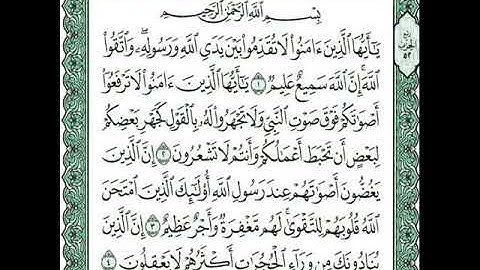 بِسْمِ ٱللَّهِ ٱلرَّحْمَٰنِ ٱلرَّحِيمِ
يَٰٓأَيُّهَا ٱلَّذِينَ ءَامَنُوا۟ لَا تُقَدِّمُوا۟ بَيْنَ يَدَىِ ٱللَّهِ وَرَسُولِهِۦ ۖ وَٱتَّقُوا۟
ٱللَّهَ ۚ إِنَّ ٱللَّهَ سَمِيعٌ عَلِيمٌ ١ يَٰٓأَيُّهَا ٱلَّذِينَ ءَامَنُوا۟ لَا تَرْفَعُوٓا۟
أَصْوَٰتَكُمْ فَوْقَ صَوْتِ ٱلنَّبِىِّ وَلَا تَجْهَرُوا۟ لَهُۥ بِٱلْقَوْلِ كَجَهْرِ بَعْضِكُمْ
لِبَعْضٍ أَن تَحْبَطَ أَعْمَٰلُكُمْ وَأَنتُمْ لَا تَشْعُرُونَ ٢ إِنَّ ٱلَّذِينَ
يَغُضُّونَ أَصْوَٰتَهُمْ عِندَ رَسُولِ ٱللَّهِ أُو۟لَٰٓئِكَ ٱلَّذِينَ ٱمْتَحَنَ
ٱللَّهُ قُلُوبَهُمْ لِلتَّقْوَىٰ ۚ لَهُم مَّغْفِرَةٌ وَأَجْرٌ عَظِيمٌ ٣ إِنَّ ٱلَّذِينَ
يُنَادُونَكَ مِن وَرَآءِ ٱلْحُجُرَٰتِ أَكْثَرُهُمْ لَا يَعْقِلُونَ ٤